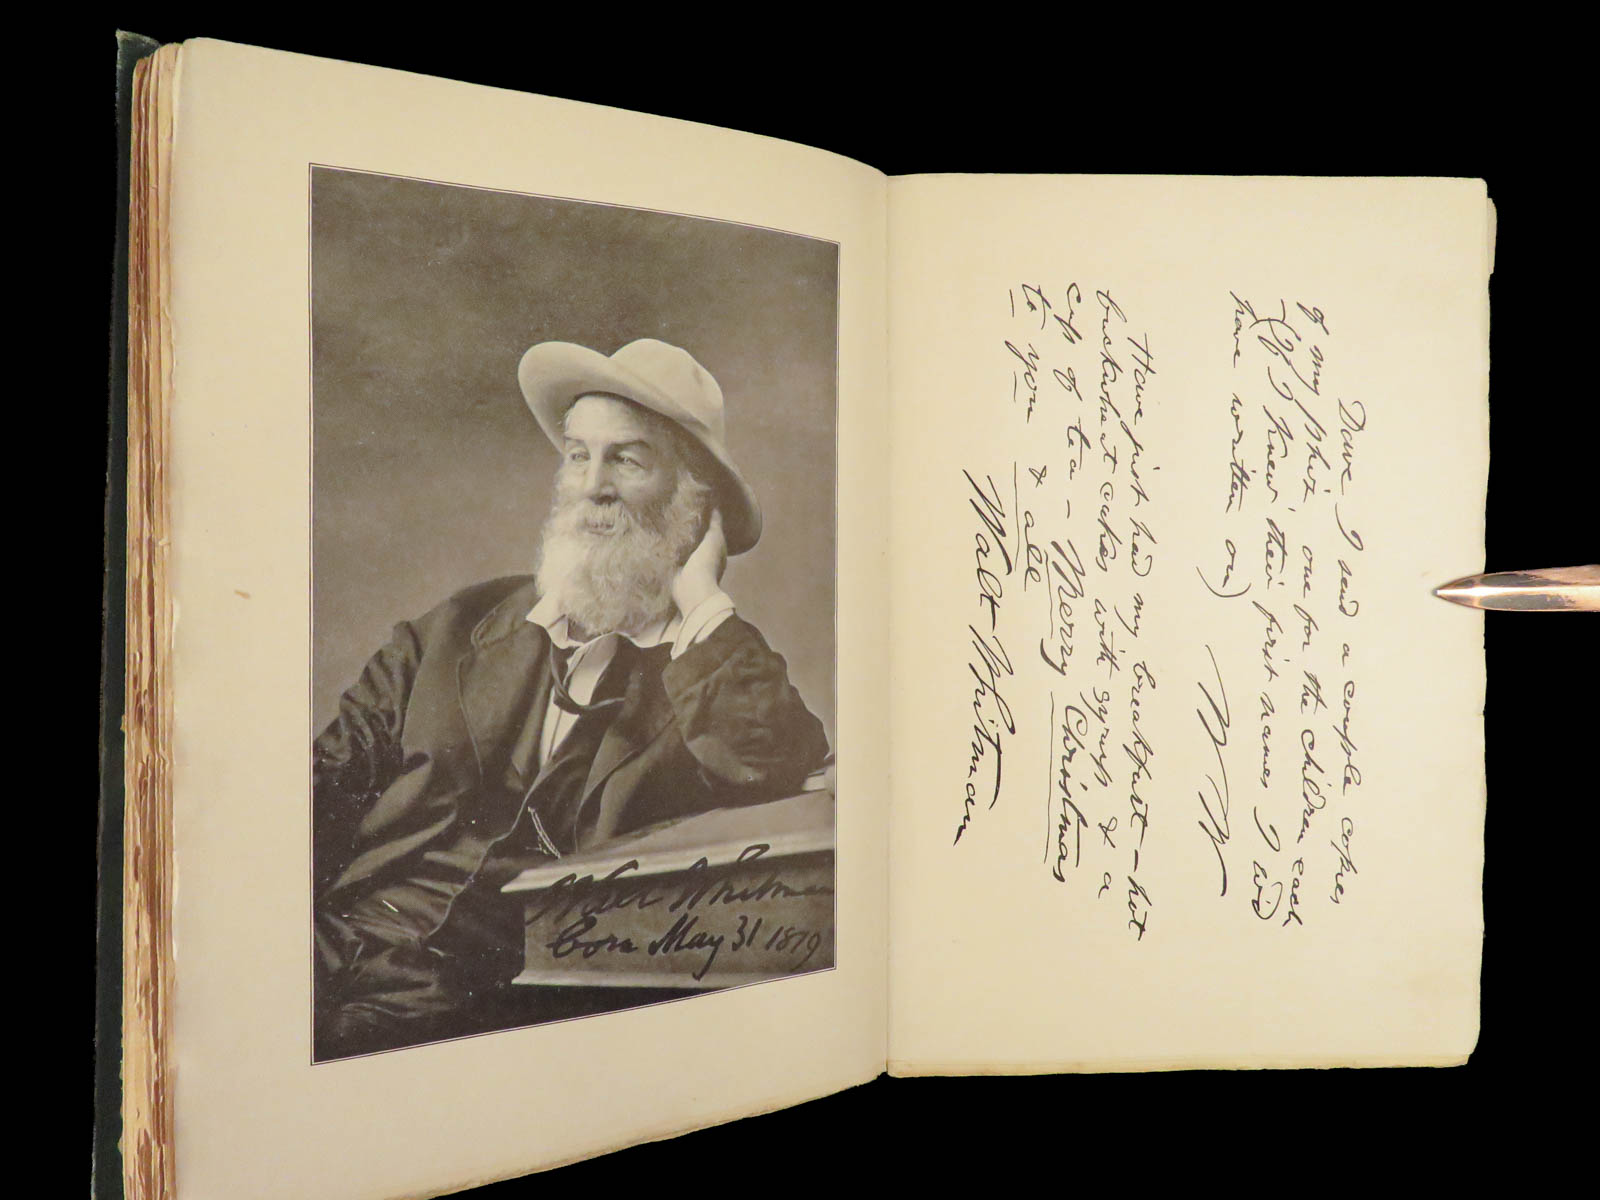 Walt Whitman
born May 31 1819
Dave I send a couple copies
of my phiz, one for the children each
— (if I knew their first names I wd
have written on)
W W
Have just had my breakfast — hot
buckwheat cakes with syrup & a
cup of tea — Merry Christmas
to you & all
Walt Whitman